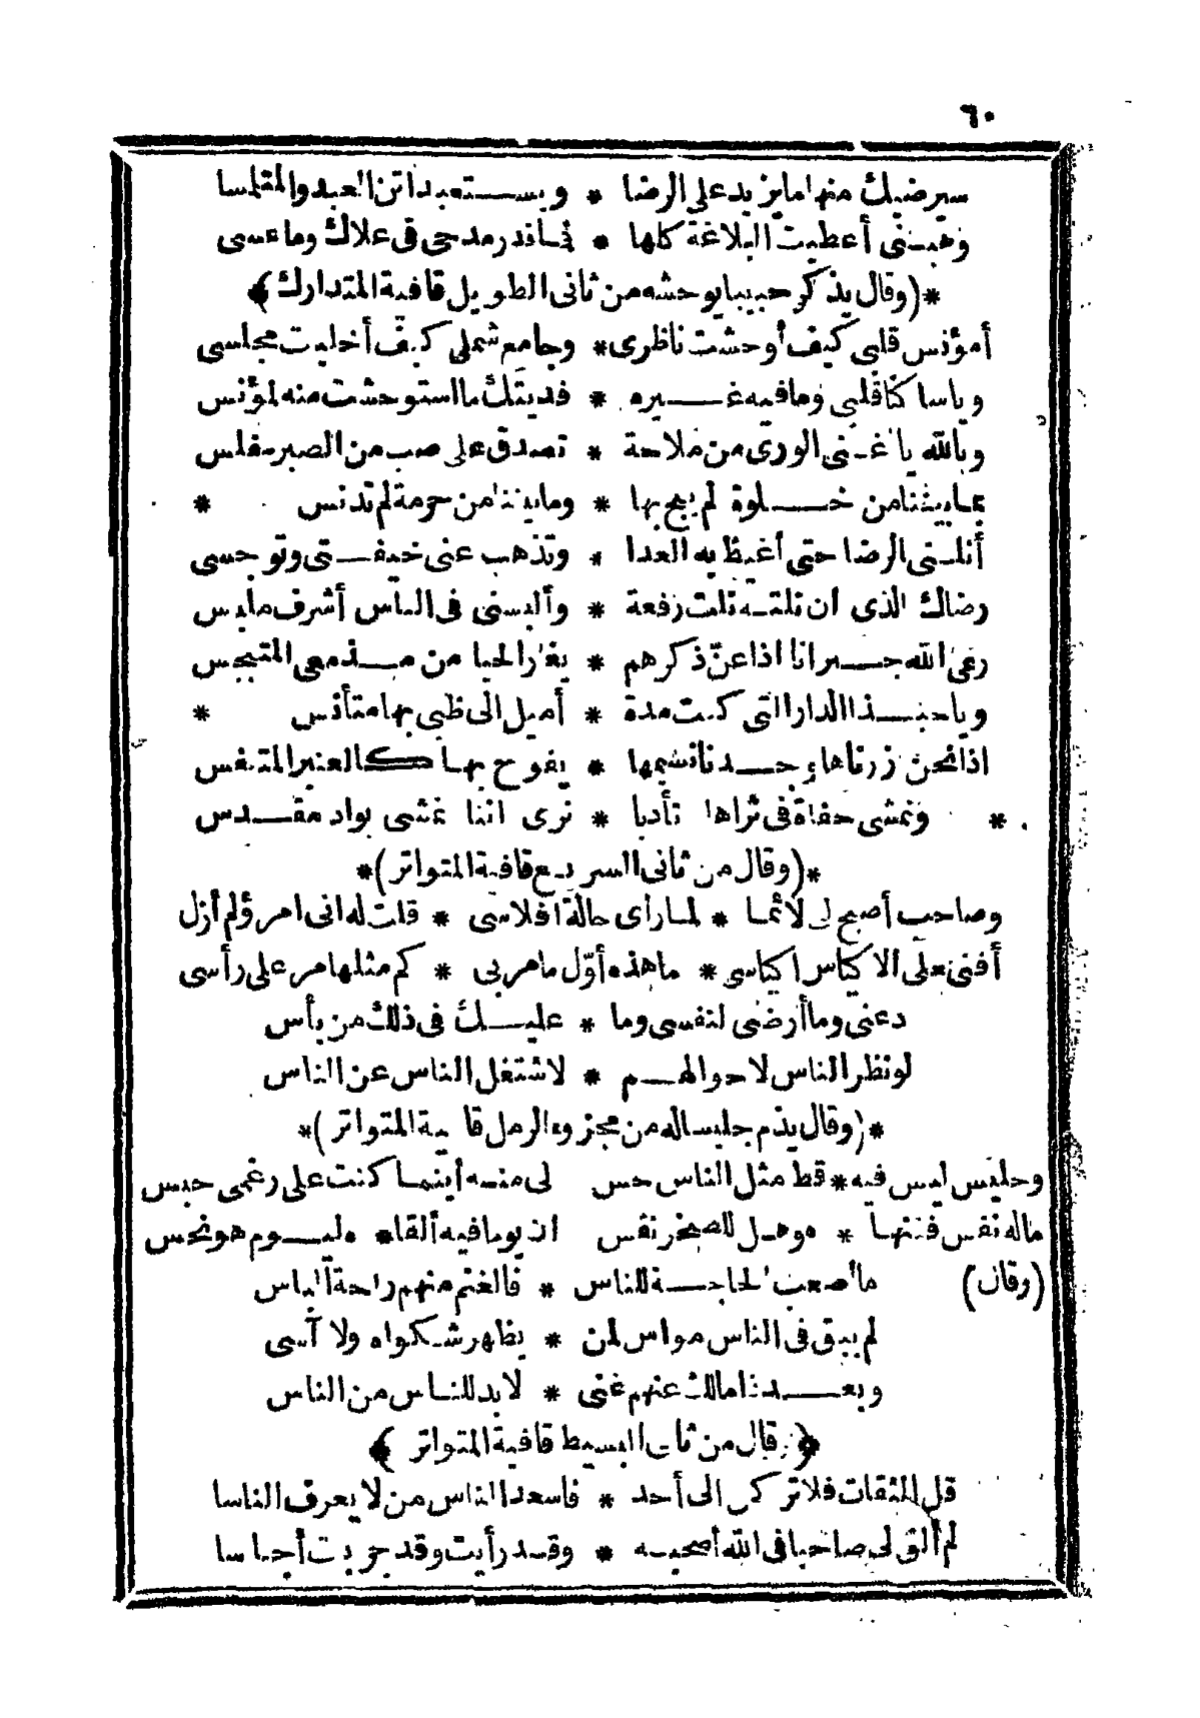 ٦٠
سيرضيك منها ما يزيد على الرضا * ويستعبدا تن العبد والمتلمسا
وهبنى أعطيت البلاغة كلها * فما قدر مدحى فى علاك وما عسى
*(وقال يذكر حبيبا يوحشه من ثانى الطويل قافية المتدارك)
أمؤنس قلبى كيف أوحشت ناظرى * وجامع شملى كيف أخليت مجلسى
وياساكنا قلبى وما فيه غيره * فديتك ما استوحشت منه لمؤنس
وبالله يا غنى الورى من ملاحة * تصدق على صب من الصبر مفلس
بما بيننا من خلوة لم يبح بها * وما بيننا من حرمة لم تدنس *
أنلنى الرضا حتى أغيظ به العدا * وتذهب عنى خيفتى وتوجسى
رضاك الذى ان نلته نلت رفعة * وألبسنى فى الناس أشرف ملبس
رعى الله جيرانا اذا عن ذكرهم * يغار الحيا من مدمعى المتبجس
ويا حبذا الدار التى كنت مدة * أميل الى ظبى بها متأنس *
اذا نحن زرناها وجدنا نسيمها * يفوح بها كالعنبر المتنفس
* ونمشى حفاة فى ثراها تأدبا * نرى اننا نمشى بواد مقدس
*(وقال من ثانى السريع قافية المتواتر)*
وصاحب أصبح لى لائما * لما رأى حالة افلاسى * قلت له انى امرؤ لم أزل
أفنى على الاكياس اكياسى * ما هذه أول ما مر بى * كم مثلها مر على رأسى
دعنى وما أرضى لنفسى وما * عليك فى ذلك من بأس
لو نظر الناس لاحوالهم * لاشتغل الناس عن الناس
*(وقال يذم جليسا له من مجزوء الرمل قافية المتواتر)*
وجليس ليس فيه * قط مثل الناس حس لى منه أينما كنت على رغمى حبس
ماله نفس فننهاها * وهل للصخر نفس ان يوما فيه ألقاه * ليوم هو نحس
(وقال) ما أصعب الحاجة للناس * فالغنم منهم راحة الياس
لم يبق فى الناس مواس لمن * يظهر شكواه ولا آسى
وبعد ذا مالك عنهم غنى * لا بد للناس من الناس
(وقال من ثانى البسيط قافية المتواتر)
قل للثقات فلا تركن الى أحد * فاسعد الناس من لا يعرف الناسا
لم ألق لى صاحبا فى الله أصحبه * وقد رأيت وقد جربت أجناسا